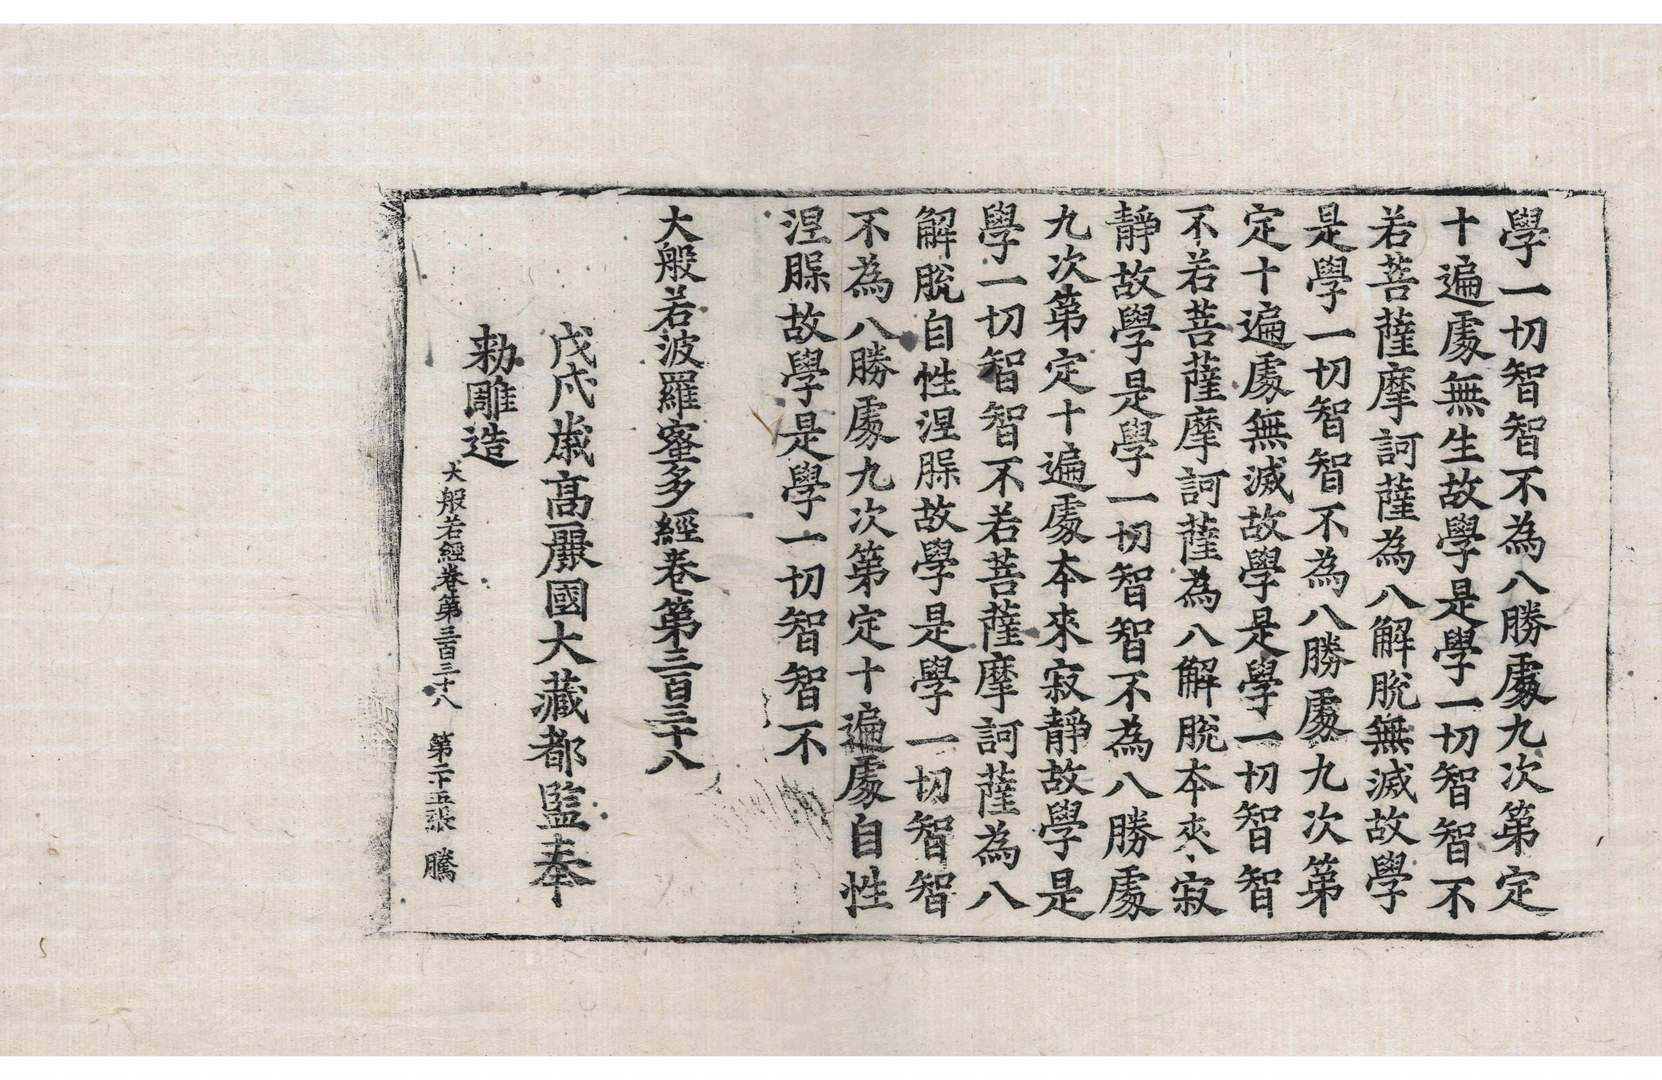 學一切智智不為八勝處九次第定
十遍處無生故學是學一切智智不
若菩薩摩訶薩為八解脫無滅故學
是學一切智智不為八勝處九次第
定十遍處無滅故學是學一切智智
不若菩薩摩訶薩為八解脫本來寂
靜故學是學一切智智不為八勝處
九次第定十遍處本來寂靜故學是
學一切智智不若菩薩摩訶薩為八
解脫自性涅槃故學是學一切智智
不為八勝處九次第定十遍處自性
涅槃故學是學一切智智不
大般若波羅蜜多經卷第三百三十八
戊戌歲高麗國大藏都監奉
勅雕造
大般若經卷第三百三十八 第二十五張 騰